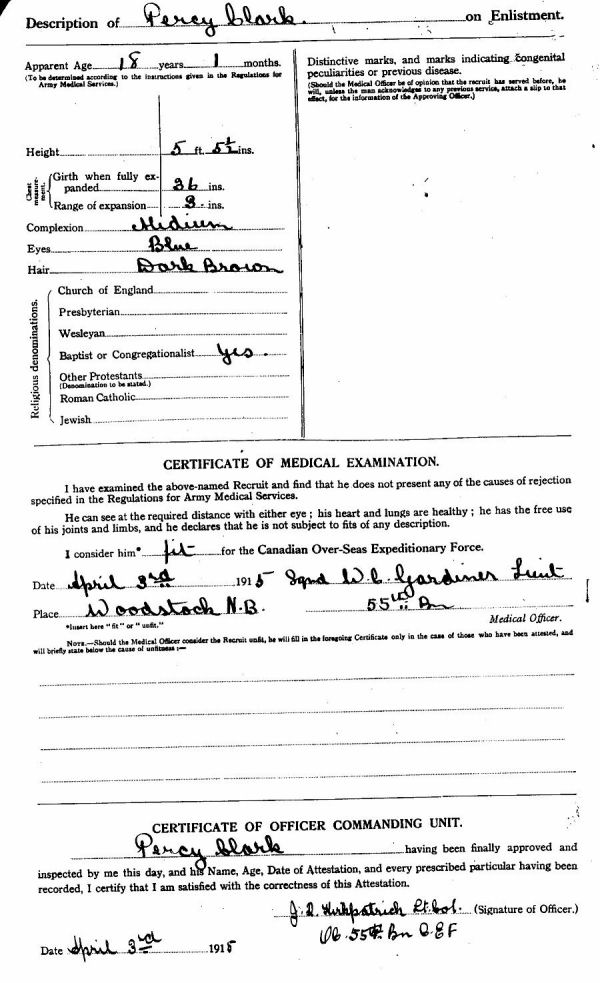 Description of Percy Clark. on Enlistment.
Apparent Age 18 years 1 months.
(To be determined according to the instructions given in the Regulations for
Army Medical Services.)
Height 5 ft. 5½ ins.
Chest
measure-
ment.
Girth when fully ex-
panded 36 ins.
Range of expansion 3 ins.
Complexion Medium
Eyes Blue
Hair Dark Brown
Religious denominations.
Church of England
Presbyterian
Wesleyan
Baptist or Congregationalist Yes.
Other Protestants
(Denomination to be stated.)
Roman Catholic
Jewish
Distinctive marks, and marks indicating congenital
peculiarities or previous disease.
(Should the Medical Officer be of opinion that the recruit has served before, he
will, unless the man acknowledges to any previous service, attach a slip to that
effect, for the information of the Approving Officer.)
CERTIFICATE OF MEDICAL EXAMINATION.
I have examined the above-named Recruit and find that he does not present any of the causes of rejection
specified in the Regulations for Army Medical Services.
He can see at the required distance with either eye; his heart and lungs are healthy; he has the free use
of his joints and limbs, and he declares that he is not subject to fits of any description.
I consider him* fit for the Canadian Over-Seas Expeditionary Force.
Date April 3rd 1915 Sgnd W.C. Gardiner Lieut
Place Woodstock N.B. 55th Bn
Medical Officer.
*Insert here "fit" or "unfit."
NOTE.—Should the Medical Officer consider the Recruit unfit, he will fill in the foregoing Certificate only in the case of those who have been attested, and
will briefly state below the cause of unfitness:—
CERTIFICATE OF OFFICER COMMANDING UNIT.
Percy Clark having been finally approved and
inspected by me this day, and his Name, Age, Date of Attestation, and every prescribed particular having been
recorded, I certify that I am satisfied with the correctness of this Attestation.
J.R. Kirkpatrick Lt. Col. (Signature of Officer.)
OC. 55th Bn C.E.F
Date April 3rd 1915